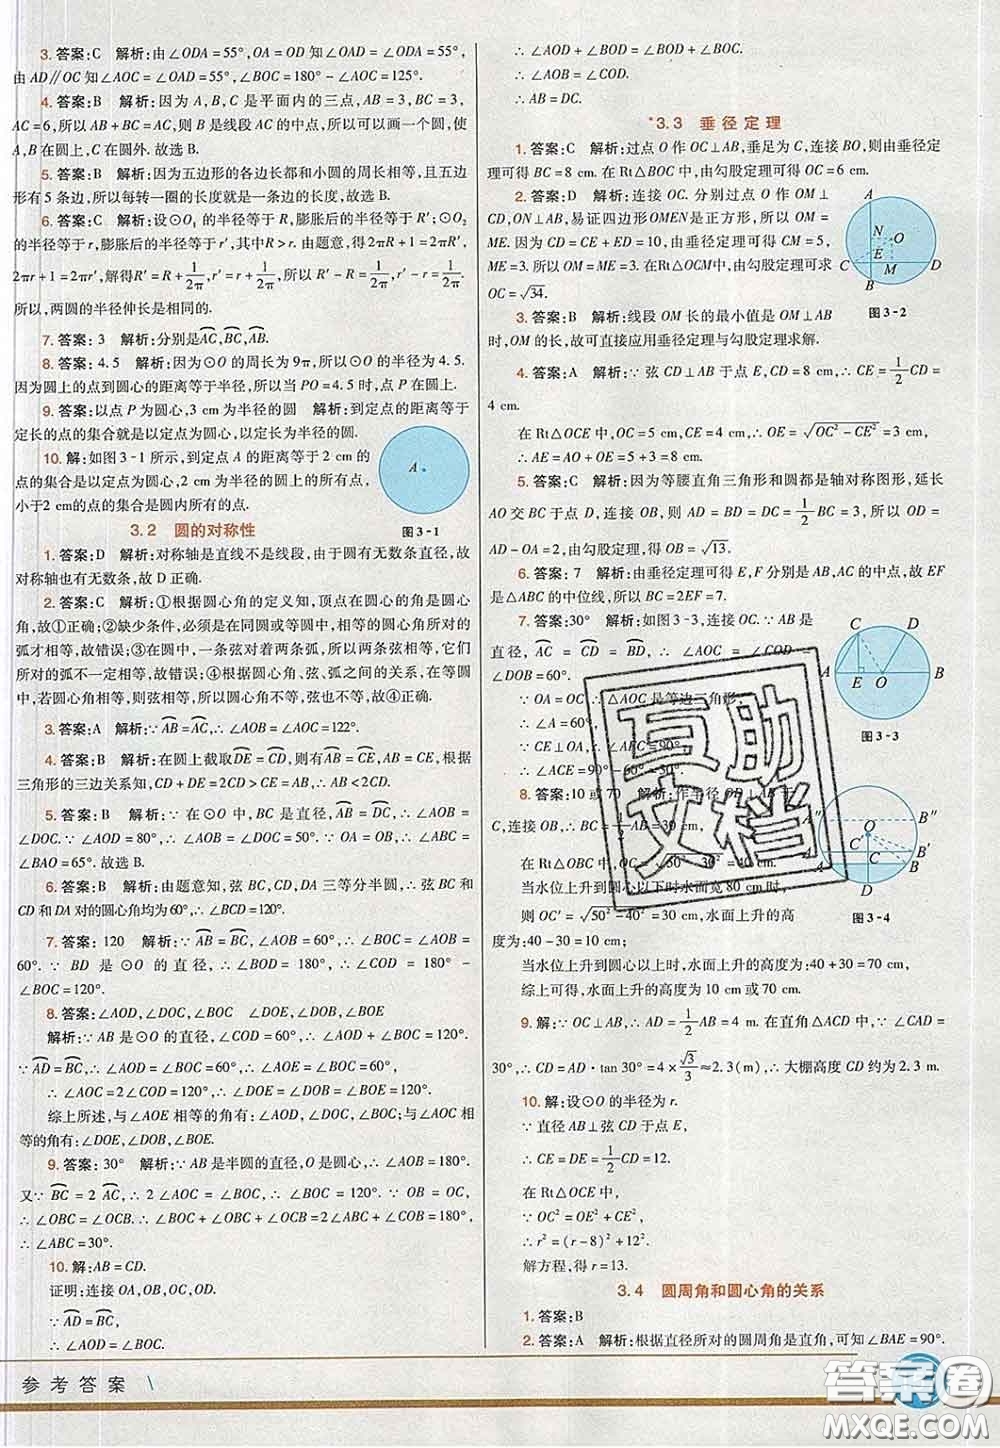 3. 答案:C 解析:由∠ODA=55°,OA=OD 知∠OAD=∠ODA=55°,
由 AD∥OC 知∠AOC=∠OAD=55°,∠BOC=180°-∠AOC=125°.
4. 答案:B 解析:因为 A,B,C 是平面内的三点,AB=3,BC=3,
AC=6,所以 AB+BC=AC,所以 B 是线段 AC 的中点,所以画一个圆,使
A,B 在圆上,则 C 在圆外.故选 B.
5. 答案:B 解析:因为五边形的各边长都和小圆的周长相等,且五边
形有 5 条边,所以每转一圈的长度就是一条边的长度,故选 B.
6. 答案:C 解析:设⊙O₁ 的半径等于 R,膨胀后的半径等于 R′;⊙O₂
的半径等于 r,膨胀后的半径等于 r′,其中 R>r.由题意,得 2πR+1=2πR′,
2πr+1=2πr′,解得 R′=R+1/2π,r′=r+1/2π,所以 R′-R=1/2π,r′-r=1/2π,
所以,两圆的半径伸长是相同的.
7. 答案: 3 解析:分别是AC,BC,AB.
8. 答案:4.5 解析:因为⊙O 的周长为 9π,所以⊙O 的半径为 4.5.
因为圆上的点到圆心的距离等于半径,所以当 PO=4.5 时,点 P 在圆上.
9. 答案:以点 P 为圆心,3 cm 为半径的圆 解析:到定点的距离等于
定长的点的集合就是以定点为圆心,以定长为半径的圆.
10. 解:如图 3-1 所示,到定点 A 的距离等于 2 cm 的
点的集合是以定点 A 为圆心,2 cm 为半径的圆上所有点,
小于2 cm的点的集合是圆内所有的点.
A
图 3-1
3.2 圆的对称性
1. 答案:D 解析:对称轴是直线不是线段,由于圆有无数条直径,故
对称轴也有无数条,故 D 正确.
2. 答案:C 解析:①根据圆心角的定义知,顶点在圆心的角是圆心
角,故①正确;②缺少条件,必须是在同圆或等圆中,相等的圆心角所对的
弧才相等,故错误;③在圆中,一条弦对着两条弧,所以圆中两条相等的弦
所对的弧不一定相等,故错误;④根据圆心角、弦、弧之间的关系,在等圆
中,若圆心角相等,则弦相等,所以圆心角不等,弦也不等,故④正确.
3. 答案:A 解析:∵AB=AC,∴∠AOB=∠AOC=122°.
4. 答案:B 解析:在圆上截取DE=CD,则有AB=CE,AB=CE,根据
三角形的三边关系知,CD+DE=2CD>CE=AB,∴AB<2CD.
5. 答案:B 解析:∵在⊙O 中,AB是直径,AB=DC,∴∠AOB=
∠DOC.∵∠AOD=80°,∴∠AOB=∠DOC=50°.∵OA=OB,∴∠ABO=
∠BAO=65°.故选 B.
6. 答案:B 解析:由题意知,弦 BC,CD,DA 三等分半圆,∴弦 BC 和
CD 和 DA 对的圆心角均为 60°,∴∠BCD=120°.
7. 答案: 120 解析:∵AB=BC,∠AOB=60°,∴∠BOC=∠AOB=
60°.∵BD 是⊙O 的直径,∴∠BOD=180°,∴∠COD=180°-
∠BOC=120°.
8. 答案:∠AOD,∠DOC,∠BOC ∠DOE,∠DOB,∠BOE
解析:∵AB 是⊙O 的直径,∠COD=60°,∴∠AOD+∠BOC=120°.
∵AD=BC,∴∠AOD=∠BOC=60°,∴∠AOE=∠BOC=60°,
∴∠AOC=2∠COD=120°,∴∠DOE=120°.
综上所述,与∠AOE 相等的角有:∠AOD,∠DOC,∠BOC;与∠AOC
相等的角有:∠DOE,∠DOB,∠BOE.
9. 答案:30° 解析:∵AB 是半圆的直径,O 是圆心,∴∠AOB=180°.
又∵BC=2 AC,∴2∠AOC=∠BOC,∴∠BOC=120°.∵OB=OC,
∴∠OBC=∠OCB.∴∠BOC+∠OBC+∠OCB=2∠ABC+∠BOC=180°,
∴∠ABC=30°.
10. 解:AB=CD.
证明:连接 OA,OB,OC,OD.
∵AD=BC,
∴∠AOD=∠BOC.
∴∠AOD+∠BOD=∠BOD+∠BOC.
∴∠AOB=∠COD.
∴AB=DC.
*3.3 垂径定理
1. 答案:C 解析:过点 O 作 OC⊥AB,垂足为 C,连接 BO,则由垂径
定理可得 BC=8 cm.在 Rt△BOC 中,由勾股定理可得 OC=6 cm.
2. 答案:D 解析:连接 OC.分别过点 O 作 OM⊥
CD,ON⊥AB,易证四边形 OMEN 是正方形,所以 OM=
ME.因为 CD=CE+ED=10,由垂径定理可得 CM=5,
ME=3.所以 OM=3.在 Rt△OCM 中,由勾股定理可求
OC=√34.
A N O E C M D B
图 3-2
3. 答案:B 解析:线段 OM 长的最小值是 OM⊥AB
时,OM 的长,故可直接应用垂径定理与勾股定理求解.
4. 答案:A 解析:∵弦 CD⊥AB 于点 E,CD=8 cm,∴CE=1/2CD=
4 cm.
在 Rt△OCE 中,OC=5 cm,CE=4 cm,∴OE=√(OC²-CE²)=3 cm,
∴AE=AO+OE=5+3=8 cm.
5. 答案:C 解析:因为等腰直角三角形和圆都是轴对称图形,延长
AO 交 BC 于点 D,连接 OB,则有 AD⊥BC,BD=1/2BC=3=AD,OD=
AD-OA=2,由勾股定理,得 OB=√13.
6. 答案: 7 解析:由垂径定理可得 E,F 分别是 AB,AC 的中点,故 EF
是△ABC 的中位线,所以 BC=2EF=7.
7. 答案:30° 解析:如图 3-3,连接 OC.∵AB 是
直径,AC=CD=BD,∴∠AOC=∠COD=
∠DOB=60°.
∵OA=OC,∴△AOC 是等边三角形,
∴∠A=60°,
∵CE⊥OA,∴∠AEC=90°,
∴∠ACE=90°
C D A E O B
图 3-3
8. 答案:10 或 70 解析:作半径 OD⊥AB 于
C,连接 OB,∴BC=1/2AB=30 cm,
在 Rt△OBC 中,OC=√50²-30²=40 cm.
当水位上升到圆心以下时水面宽 80 cm 时,
则 OC′=√(50²-40²)=30 cm,水面上升的高
度为:40-30=10 cm;
A″ B″ O B′ C B D
图 3-4
当水位上升到圆心以上时,水面上升的高度为:40+30=70 cm,
综上可得,水面上升的高度为 10 cm 或 70 cm.
9. 解:∵OC⊥AB,∴AD=1/2AB=4 m.在直角△ACD 中,∵∠CAD=
30°,∴CD=AD·tan 30°=4×√3/3≈2.3(m),∴大棚高度 CD 约为 2.3 m.
10. 解:设⊙O 的半径为 r.
∵直径 AB⊥弦 CD 于点 E,
∴CE=DE=1/2CD=12.
在 Rt△OCE 中,
∵OC²=OE²+CE²,
∴r²=(r-8)²+12².
解方程,得 r=13.
3.4 圆周角和圆心角的关系
1. 答案:B
2. 答案:A 解析:根据直径所对的圆周角是直角,可知∠BAE=90°.
互助
文档
参考答案
答案圈
MXQE.COM